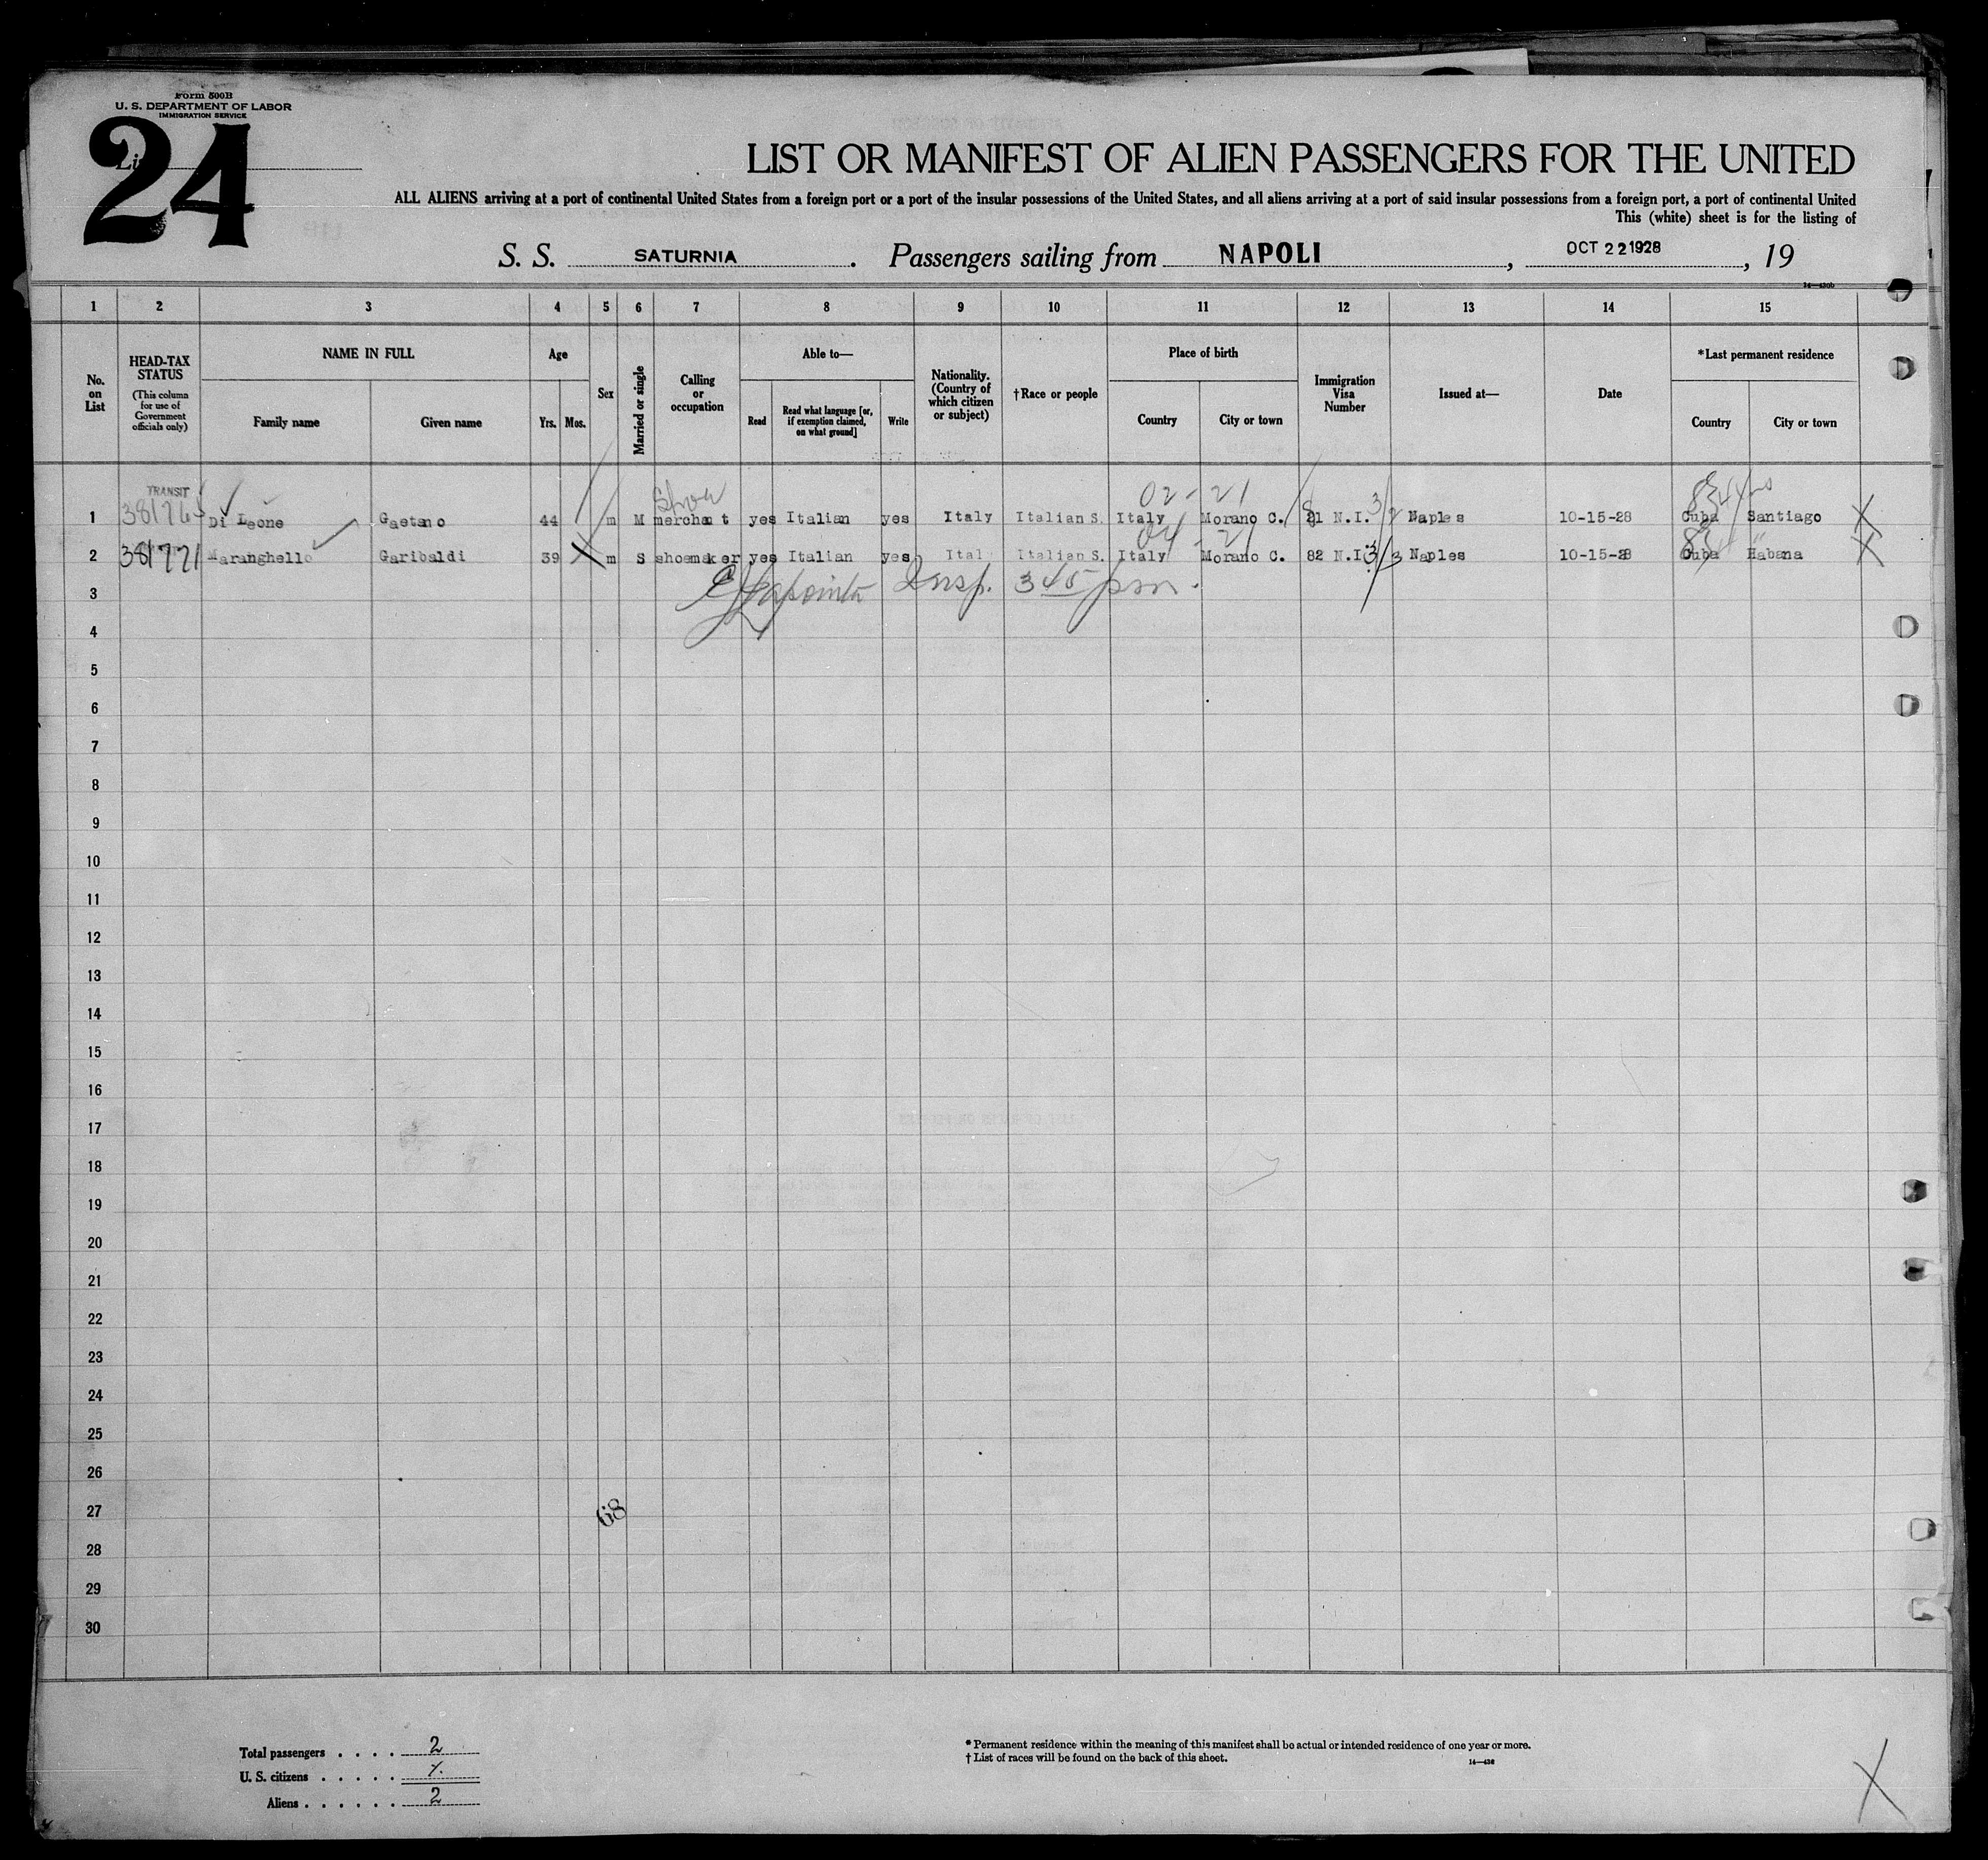 Form 500B
U. S. DEPARTMENT OF LABOR
IMMIGRATION SERVICE
24
LIST OR MANIFEST OF ALIEN PASSENGERS FOR THE UNITED
ALL ALIENS arriving at a port of continental United States from a foreign port or a port of the insular possessions of the United States, and all aliens arriving at a port of said insular possessions from a foreign port, a port of continental United
This (white) sheet is for the listing of
S. S. SATURNIA. Passengers sailing from NAPOLI, OCT 22 1928, 19
14—430b
1 2 3 4 5 6 7 8 9 10 11 12 13 14 15
No. on List
HEAD-TAX STATUS
(This column for use of Government officials only)
NAME IN FULL
Family name Given name
Age
Yrs. Mos.
Sex
Married or single
Calling or occupation
Able to—
Read
Read what language [or, if exemption claimed, on what ground]
Write
Nationality. (Country of which citizen or subject)
†Race or people
Place of birth
Country City or town
Immigration Visa Number
Issued at—
Date
*Last permanent residence
Country City or town
TRANSIT
Shoe 02-21
1 Di Leone Gaetano 44 m M merchant yes Italian yes Italy Italian S. Italy Morano C. 81 N.I. 3/2 Naples 10-15-28 Cuba Santiago
04-21
2 381771 Maranghello Garibaldi 39 m S shoemaker yes Italian yes Ital Italian S. Italy Morano C. 82 N.I. 3/3 Naples 10-15-28 Cuba Habana
3 Lapointe Insp. 3 45 pm.
4
5
6
7
8
9
10
11
12
13
14
15
16
17
18
19
20
21
22
23
24
25
26
27
68
28
29
30
Total passengers . . . . 2
U. S. citizens . . . . .
Aliens . . . . . . 2
* Permanent residence within the meaning of this manifest shall be actual or intended residence of one year or more.
† List of races will be found on the back of this sheet.
14—430